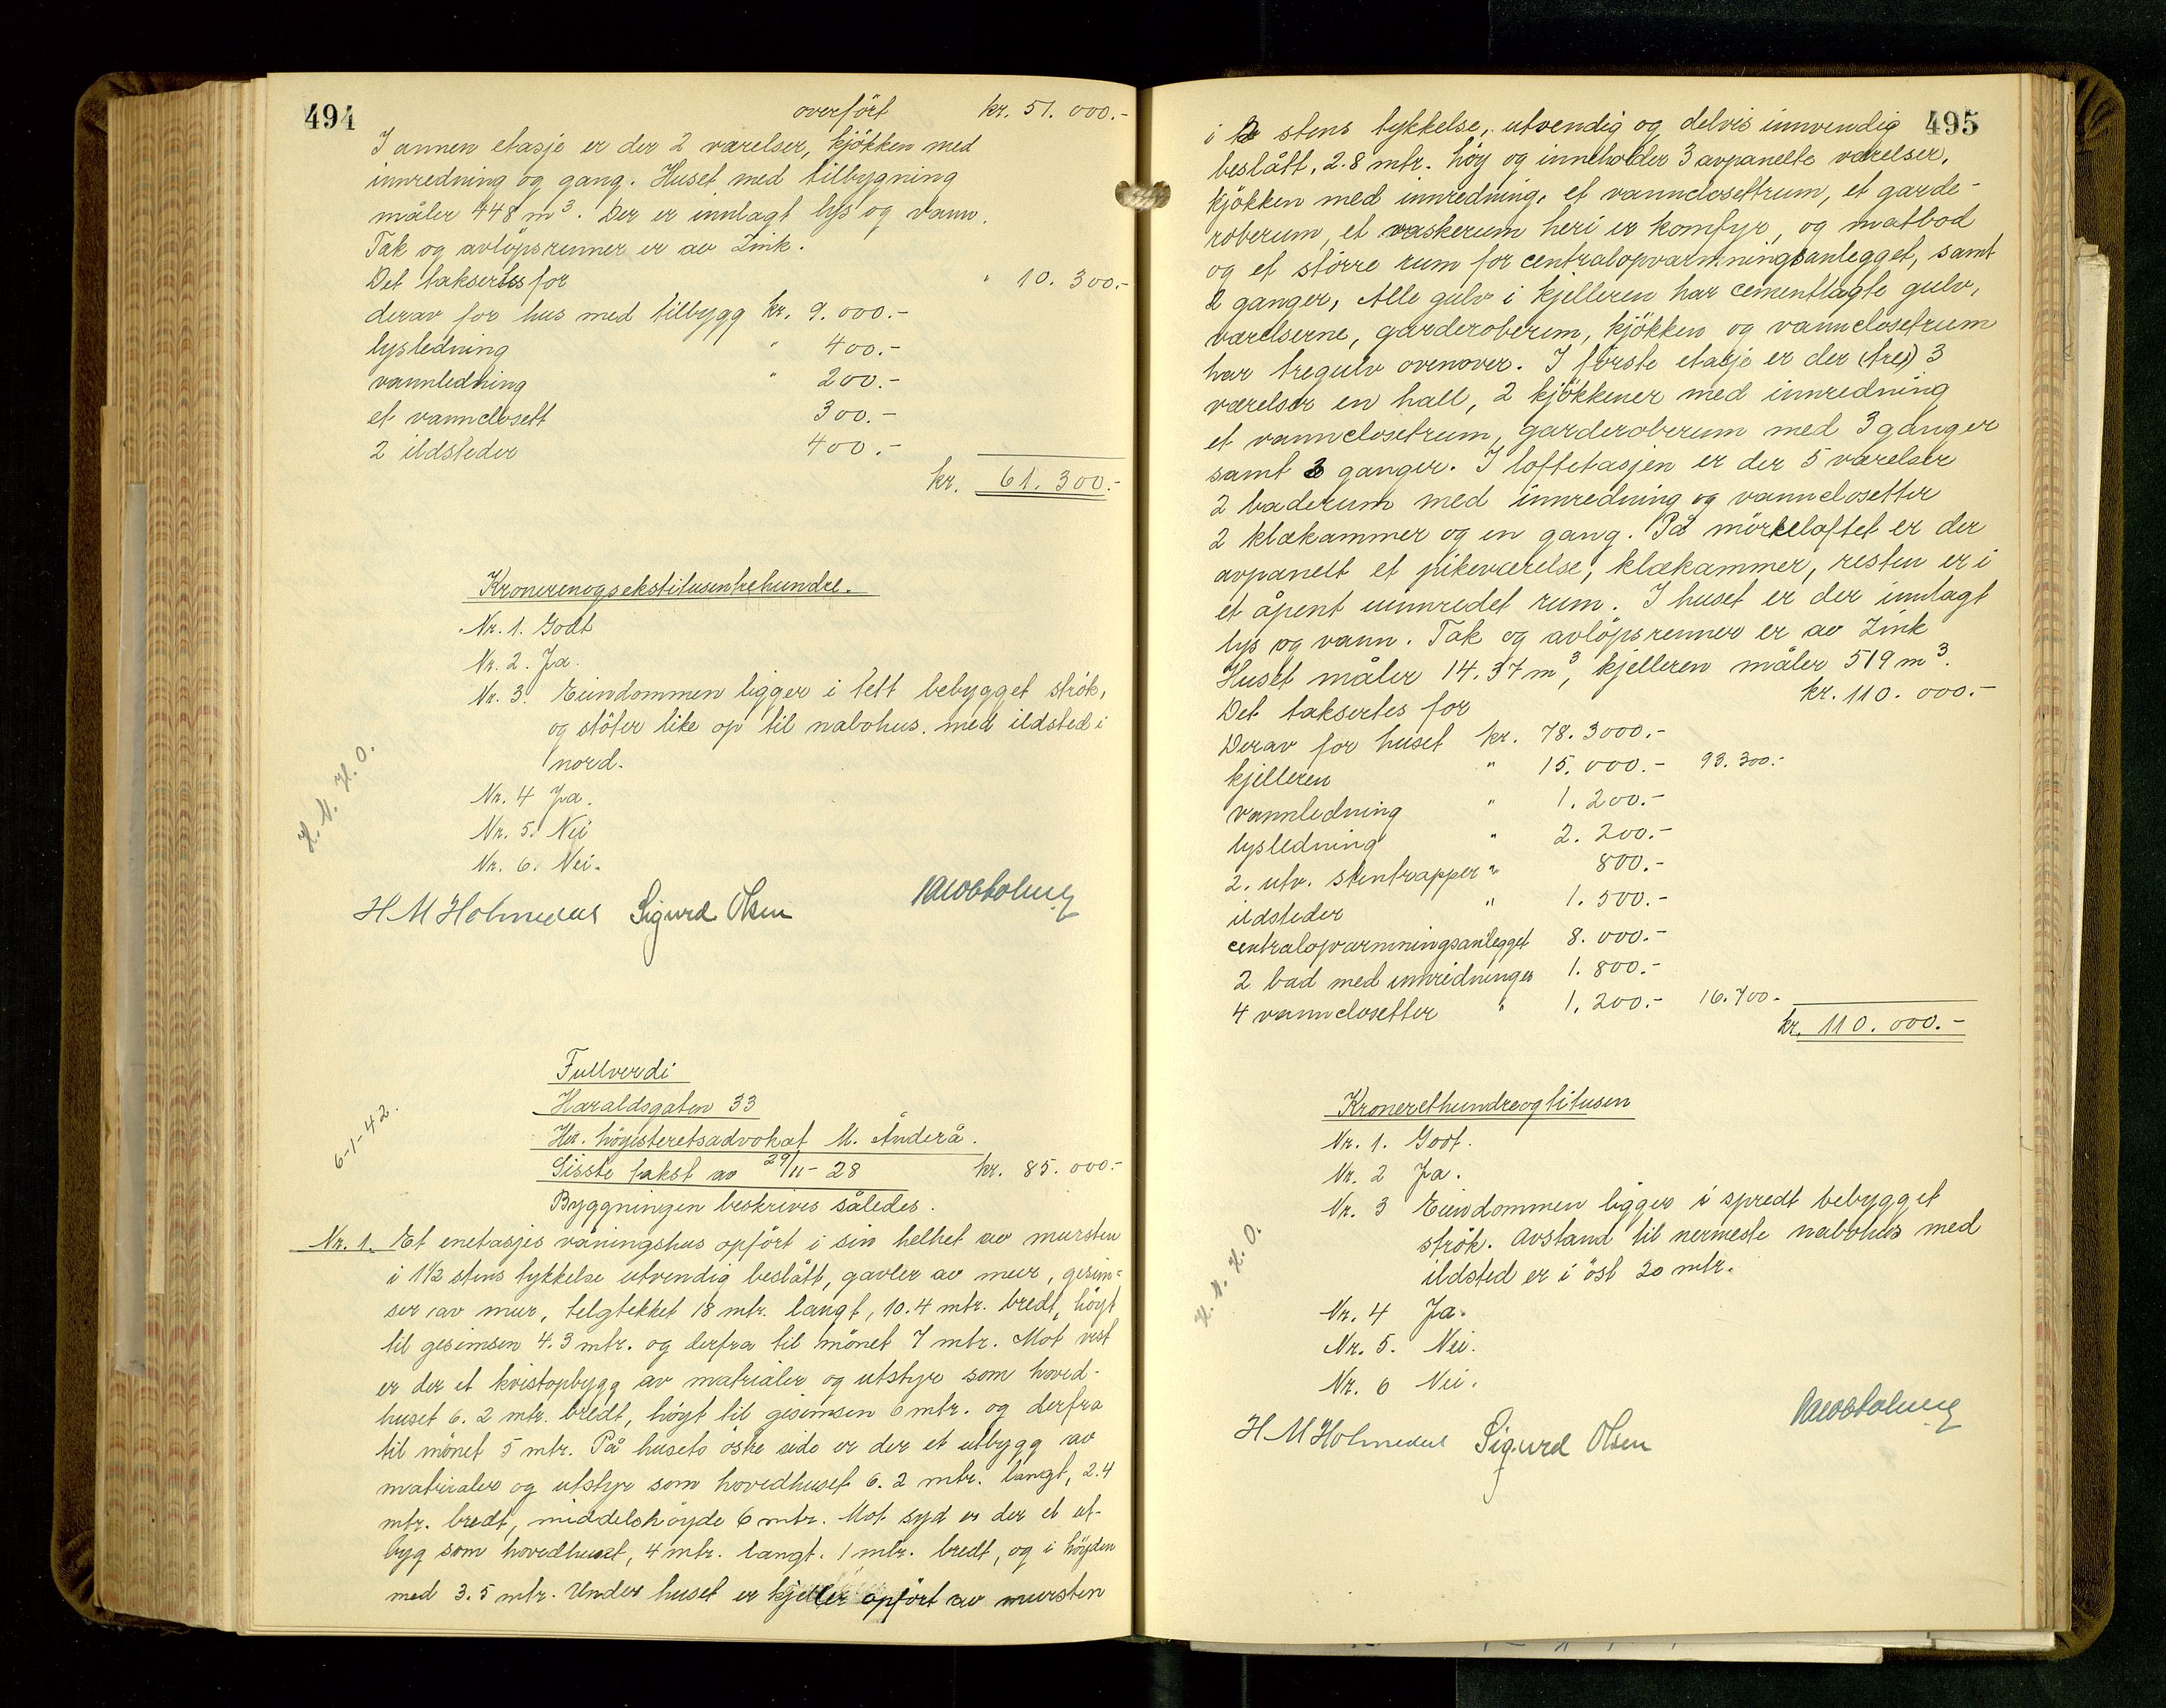 494
overfört kr. 51.000.-
I annen etasje er der 2 værelser, kjökken med
innredning og gang. Huset med tilbygning
måler 448 m³. Der er innlagt lys og vann.
Tak og avlöpsrenner er av Zink.
Det taksertes for " 10.300.-
derav for hus med tilbygg kr. 9.000.-
lysledning " 400.-
vannledning " 200.-
et vannclosett 300.-
2 ildsteder 400.-
kr. 61.300.-
Kronerenogsekstitusentrehundre.
Nr. 1. Godt
Nr. 2. Ja.
Nr. 3. Eiendommen ligger i tett bebygget strök,
og stöter like op til nabohus med ildsted i
nord.
H. N. H. O.
Nr. 4 Ja.
Nr. 5. Nei
Nr. 6. Nei.
H M Holmedal Sigurd Olsen
Fullverdi
Haraldsgaten 33
Hr. höiesteretsadvokat M. Anderå.
6-1-42.
Sisste takst av 29/11-28 kr. 85.000.-
Byggningen beskrives således.
Nr. 1. Et enetasjes våningshus opfört i sin helhet av mursten
i 1½ stens tykkelse utvendig beslått, gavler av mur, gesim-
ser av mur, telgtekket 18 mtr. langt, 10.4 mtr. bredt, höyt
til gesimsen 4.3 mtr. og derfra til mönet 7 mtr. Mot vest
er der et kvistopbygg av matrialer og utstyr som hoved-
huset 6.2 mtr. bredt, höyt til gesimsen 6 mtr. og derfra
til mönet 5 mtr. På husets östre side er der et utbygg av
matrialer og utstyr som hovedhuset 6.2 mtr. langt, 2.4
mtr. bredt, middelshöyde 6 mtr. Mot syd er der et ut-
byg som hovedhuset, 4 mtr. langt. 1 mtr. bredt, og i höyden
med 3.5 mtr. Under huset er kjeller opfört av mursten
495
i 2 stens tykkelse, utvendig og delvis innvendig
beslått, 2.8 mtr. höy og inneholder 3 avpanelte værelser,
kjökken med innredning, et vannclosettrum, et garde-
roberum, et vaskerum heri er komfyr, og matbod
og et större rum for centralopvarmningsanlegget, samt
2 ganger, Alle gulv i kjelleren har cementlagte gulv,
værelserne, garderoberum, kjökken og vannclosetrum
har tregulv ovenover. I förste etasje er der (tre) 3
værelser en hall, 2 kjökkener med innredning
et vannclosetrum, garderoberum med 3 ganger
samt 3 ganger. I loftetasjen er der 5 værelser
2 baderum med innredning og vannclosetter
2 klækammer og en gang. På mörkeloftet er der
avpanelt et pikeværelse, klækammer, resten er i
et åpent uinnredet rum. I huset er der innlagt
lys og vann. Tak og avlöpsrenner er av Zink
Huset måler 14.37 m³, kjelleren måler 519 m³.
Det taksertes for kr. 110.000.-
Derav for huset kr. 78.3000.-
kjelleren " 15.000.- 93.300.-
vannledning " 1.200.-
lysledning " 2.200.-
2. utv. stentrapper " 800.-
ildsteder " 1.500.-
centralopvarmningsanlegget 8.000.-
2 bad med innredninger 1.800.-
4 vannclosetter " 1.200.- 16.700.-
kr. 110.000.-
Kronerethundreogtitusen
Nr. 1. Godt.
Nr. 2 Ja.
Nr. 3 Eiendommen ligger i spredt bebygget
strök. Avstand til nermeste nabohus med
ildsted er i öst 20 mtr.
H. N. H. O.
Nr. 4 Ja.
Nr. 5. Nei.
Nr. 6 Nei.
H M Holmedal Sigurd Olsen